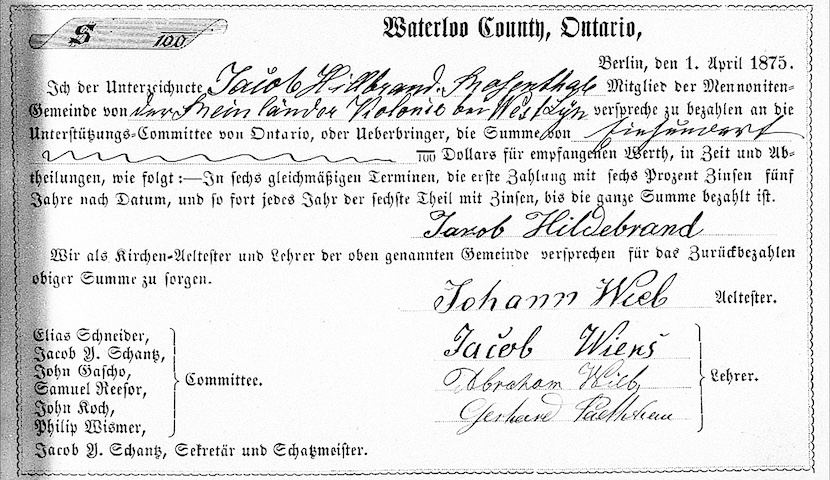 $ 100
Waterloo County, Ontario,
Berlin, den 1. April 1875.
Ich der Unterzeichnete Jacob Hildbrand. Rosenthal Mitglied der Mennoniten-
Gemeinde von der Reinländer Kolonie bei West Lyn verspreche zu bezahlen an die
Unterstützungs-Committee von Ontario, oder Ueberbringer, die Summe von Einhundert
/100 Dollars für empfangenen Werth, in Zeit und Ab-
theilungen, wie folgt:—In sechs gleichmäßigen Terminen, die erste Zahlung mit sechs Prozent Zinsen fünf
Jahre nach Datum, und so fort jedes Jahr der sechste Theil mit Zinsen, bis die ganze Summe bezahlt ist.
Jacob Hildebrand
Wir als Kirchen-Aeltester und Lehrer der oben genannten Gemeinde versprechen für das Zurückbezahlen
obiger Summe zu sorgen.
Johann Wieb Aeltester.
Elias Schneider,
Jacob Y. Schantz,
John Gascho,
Samuel Reesor,
John Koch,
Philip Wismer,
Committee.
Jacob Wiens
Abraham Wieb
Gerhard
Lehrer.
Jacob Y. Schantz, Sekretär und Schatzmeister.